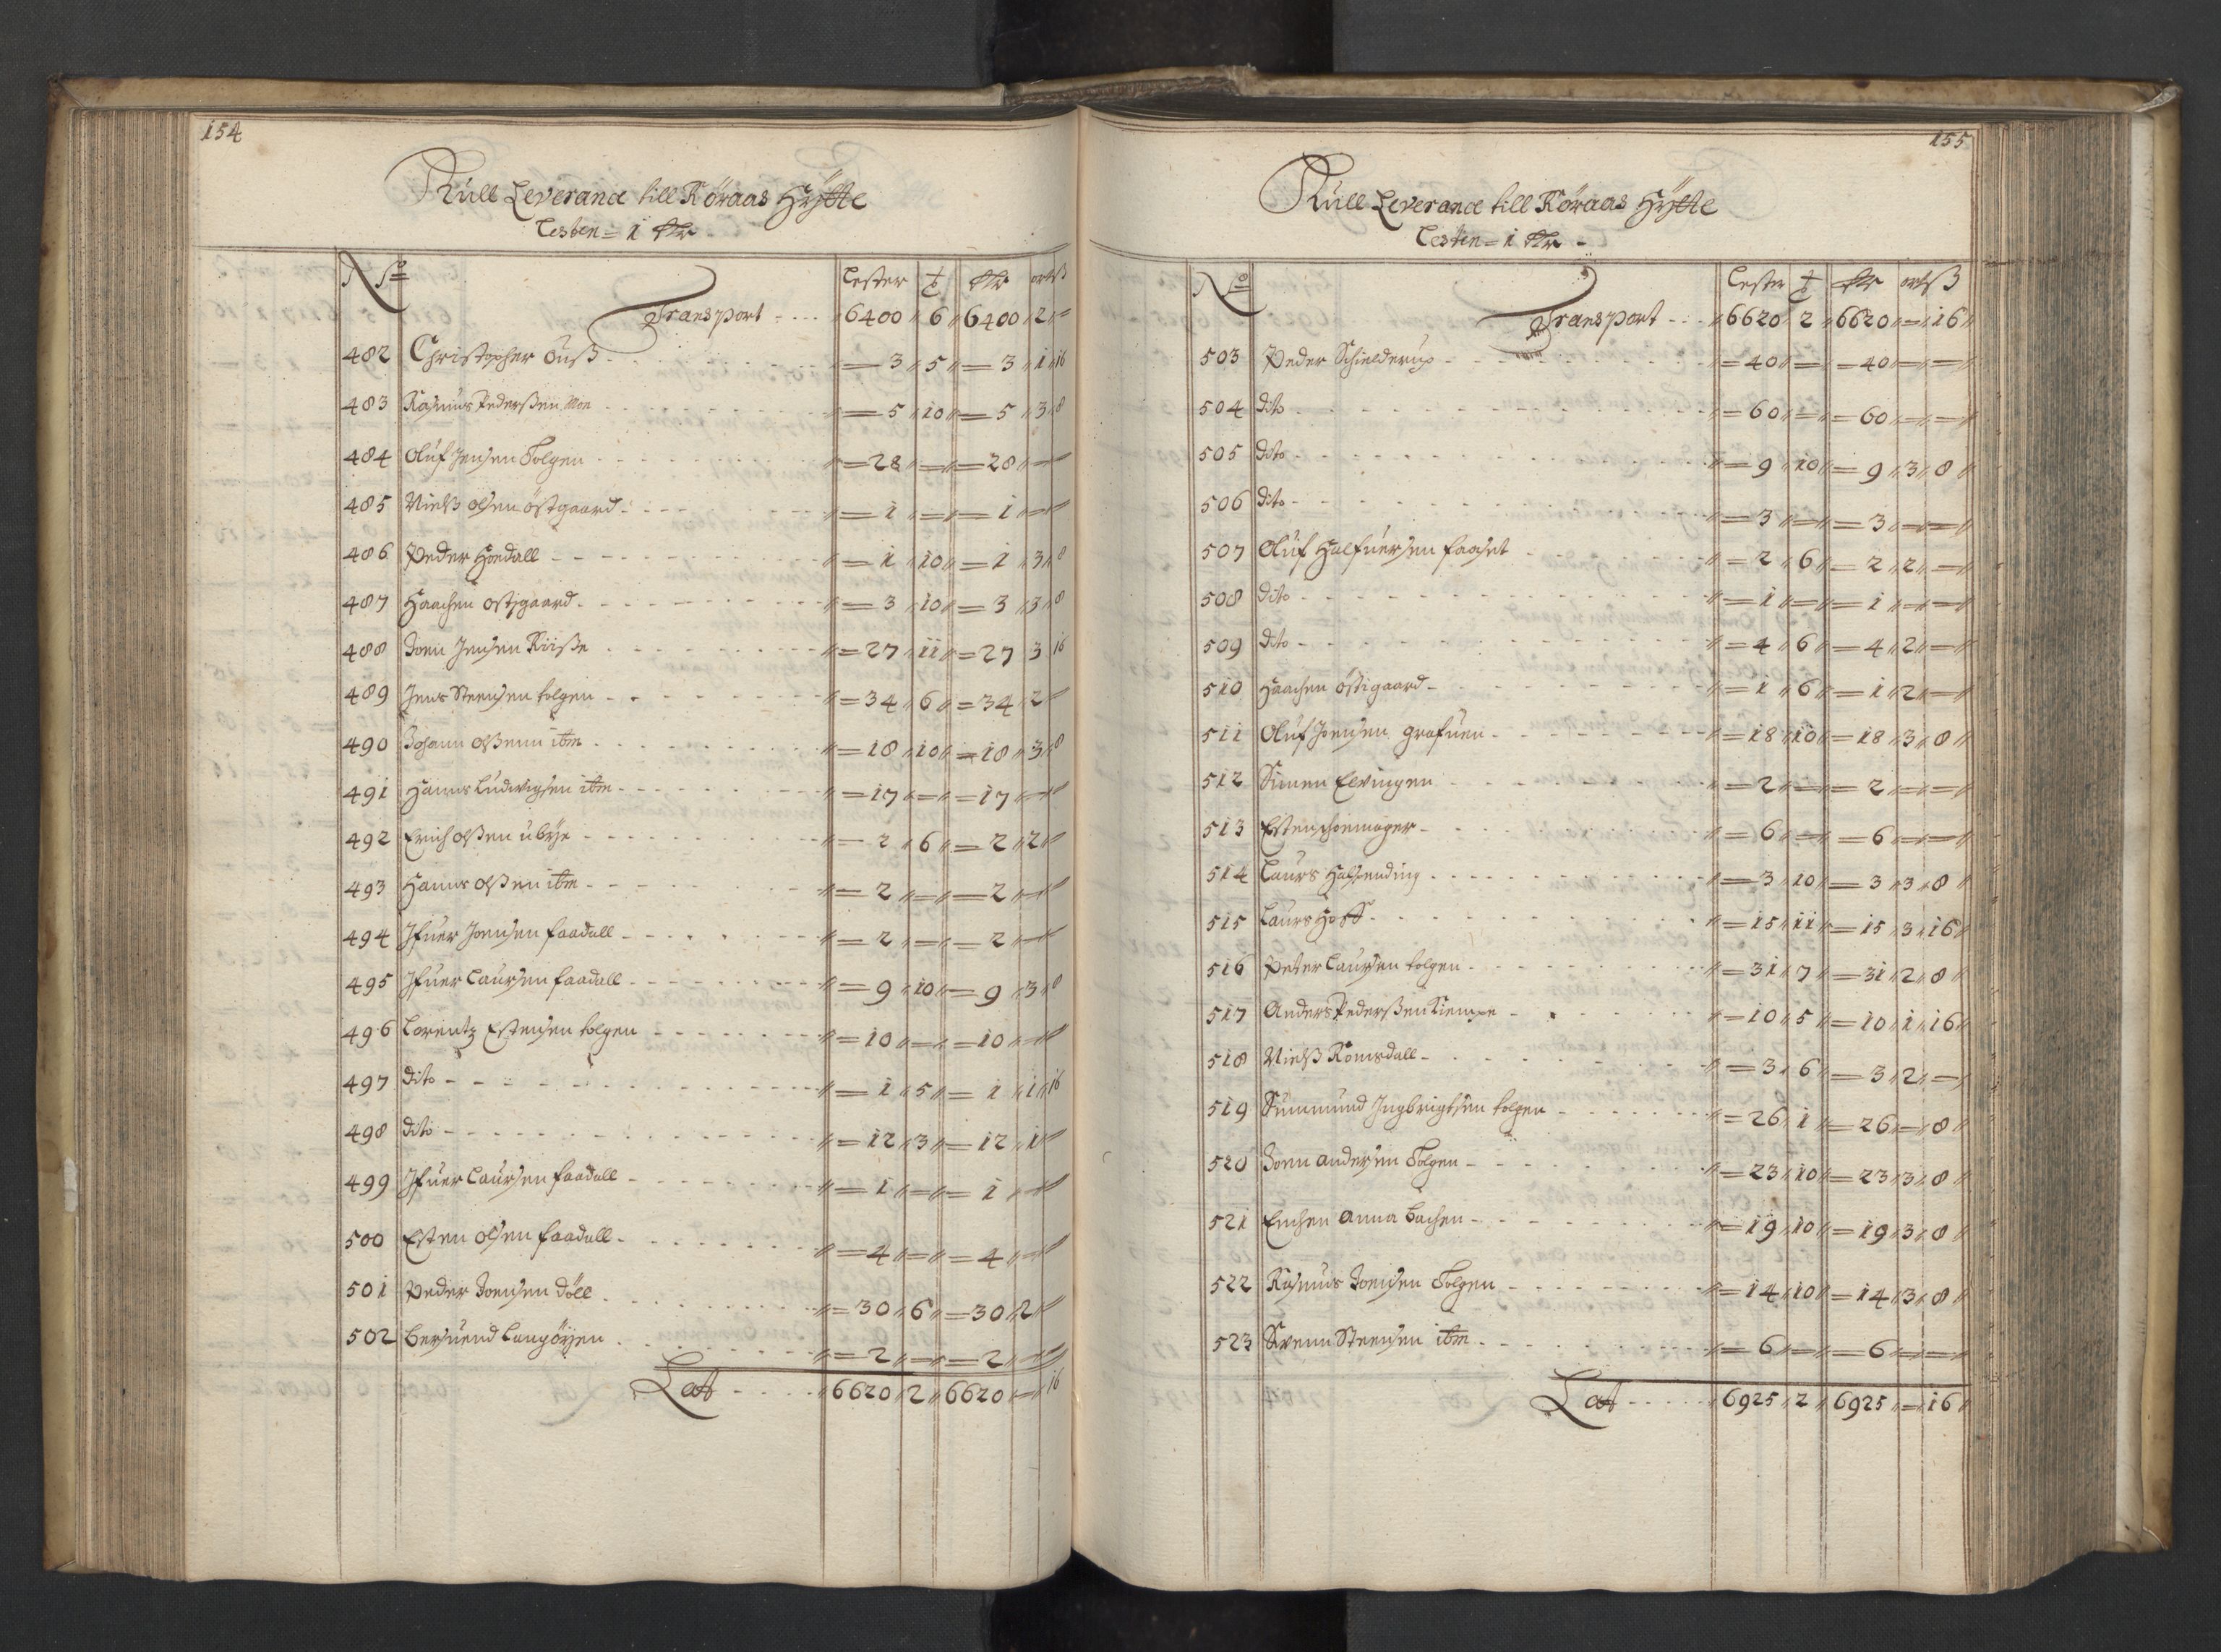 154
Kull Leverance till Röraas Hÿtte
Lesten = 1 Rdr
No Lester t Rdr ort ß
Transport - - - 6400 6 6400 2 =
482 Christopher Ouß - - - = 3 5 = 3 1 16
483 Rasmus Pederßen Moe - - - = 5 10 = 5 3 8
484 Oluf Jensen Tolgen - - - = 28 = = 28 =
485 Nielß olsen östgaard - - - = 1 = = 1 =
486 Peder Hoedall - - - = 1 10 = 1 3 8
487 Haachen ostgaard - - - = 3 10 = 3 3 8
488 Joen Jensen Riiße - - - = 27 11 = 27 3 16
489 Jens Steensen tolgen - - - = 34 6 = 34 2 =
490 Johann olßenn itm - - - = 18 10 = 18 3 8
491 Hanns Ludwigsen itm - - - = 17 = = 17 =
492 Erich olßen ubrÿe - - - = 2 6 = 2 2 =
493 Hanns olßen itm - - - = 2 = = 2 =
494 Ifuer Joensen faadall - - - = 2 = = 2 =
495 Ifuer Laursen faadall - - - = 9 10 = 9 3 8
496 Lorentz Estensen tolgen - - - = 10 = = 10 =
497 dito - - - = 1 5 = 1 1 16
498 dito - - - = 12 3 = 12 1 =
499 Ifuer Laursen faadall - - - = 1 = = 1 =
500 Esten olsen faadall - - - = 4 = = 4 =
501 Peder Joensen döll - - - = 30 6 = 30 2 =
502 Bersuend Langöÿen - - - = 2 = = 2 =
Lat - - - 6620 2 6620 = 16
155
Kull Leverance till Röraas Hÿtte
Lesten = 1 Rdr -
No Lester t Rdr ort ß
Transport - - - 6620 2 6620 = 16
503 Peder Schielderup - - - = 40 = = 40 = =
504 dito - - - = 60 = = 60 = =
505 dito - - - = 9 10 = 9 3 8
506 dito - - - = 3 = = 3 = =
507 Oluf Halfuersen faaset - - - = 2 6 = 2 2 =
508 dito - - - = 1 = = 1 = =
509 dito - - - = 4 6 = 4 2 =
510 Haachen östigaard - - - = 1 6 = 1 2 =
511 Oluf Joensen grafuen - - - = 18 10 = 18 3 8
512 Simen Elvingen - - - = 2 = = 2 = =
513 Esten schoemager - - - = 6 = = 6 = =
514 Laurs Halsending - - - = 3 10 = 3 3 8
515 Laurs Hoff - - - = 15 11 = 15 3 16
516 Peter Laursen tolgen - - - = 31 7 = 31 2 8
517 Anders Pederßen Kiempe - - - = 10 5 = 10 1 16
518 Nielß Romsdall - - - = 3 6 = 3 2 =
519 Summund Ingbrigtsen tolgen - - - = 26 1 = 26 = 8
520 Joen andersen Tolgen - - - = 23 10 = 23 3 8
521 Enchen Anna Bachen - - - = 19 10 = 19 3 8
522 Rasmus Joensen Tolgen - - - = 14 10 = 14 3 8
523 Svenn Steensen itm - - - = 6 = = 6 = =
Lat - - - 6925 2 6925 = 16